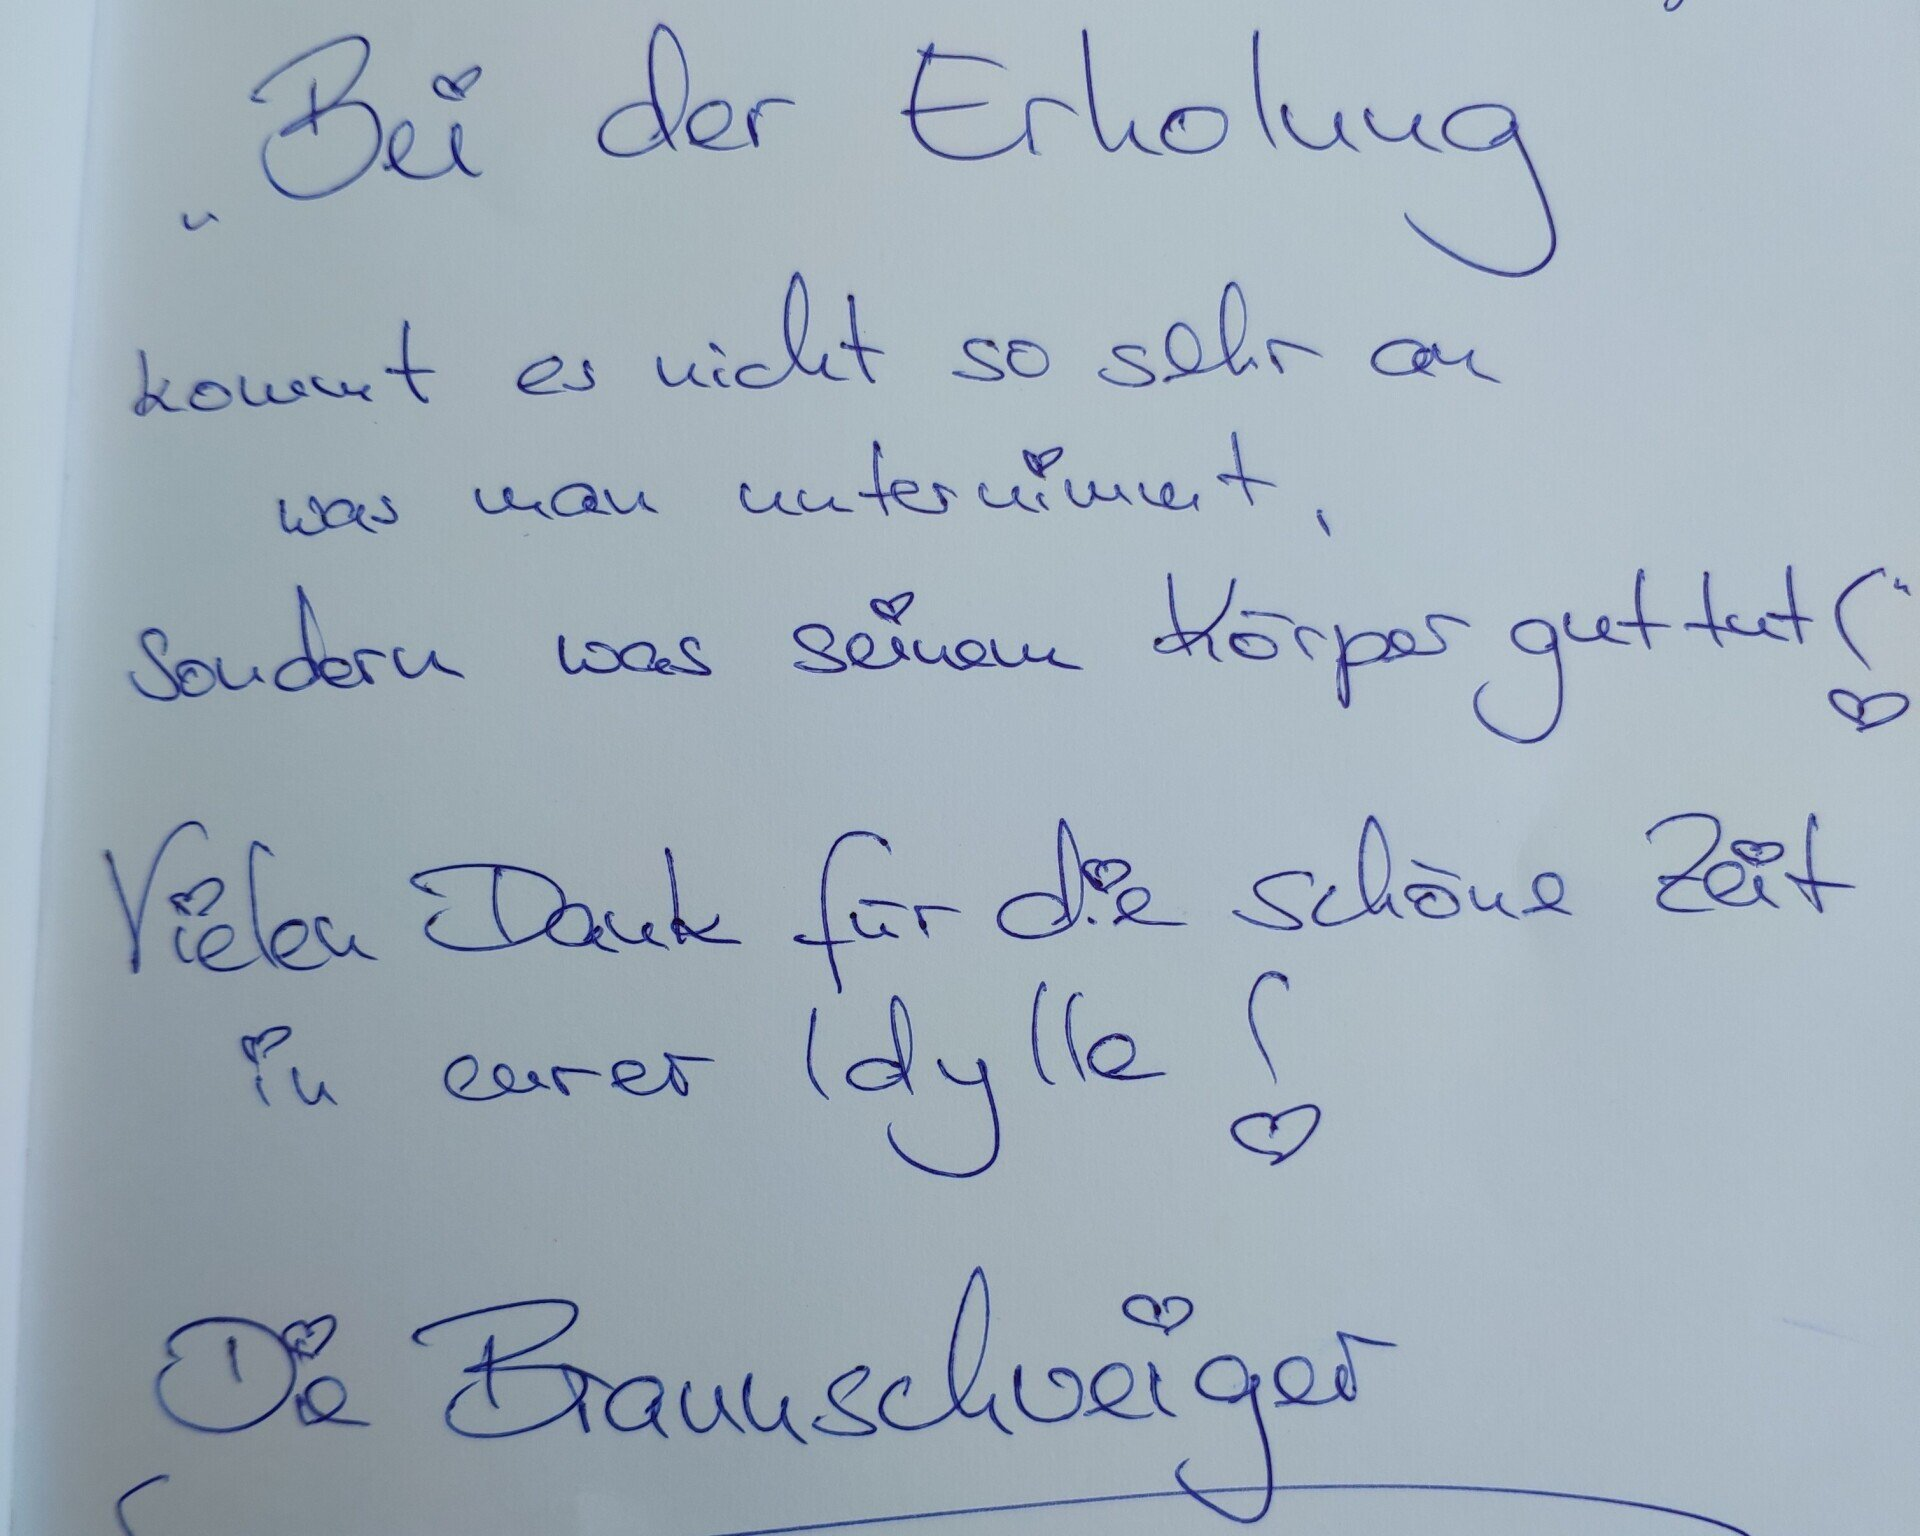 „Bei der Erholung
kommt es nicht so sehr an
was man unternimmt,
sondern was seinem Körper gut tut!“
Vielen Dank für die schöne Zeit
in eurer Idylle!
Die Braunschweiger